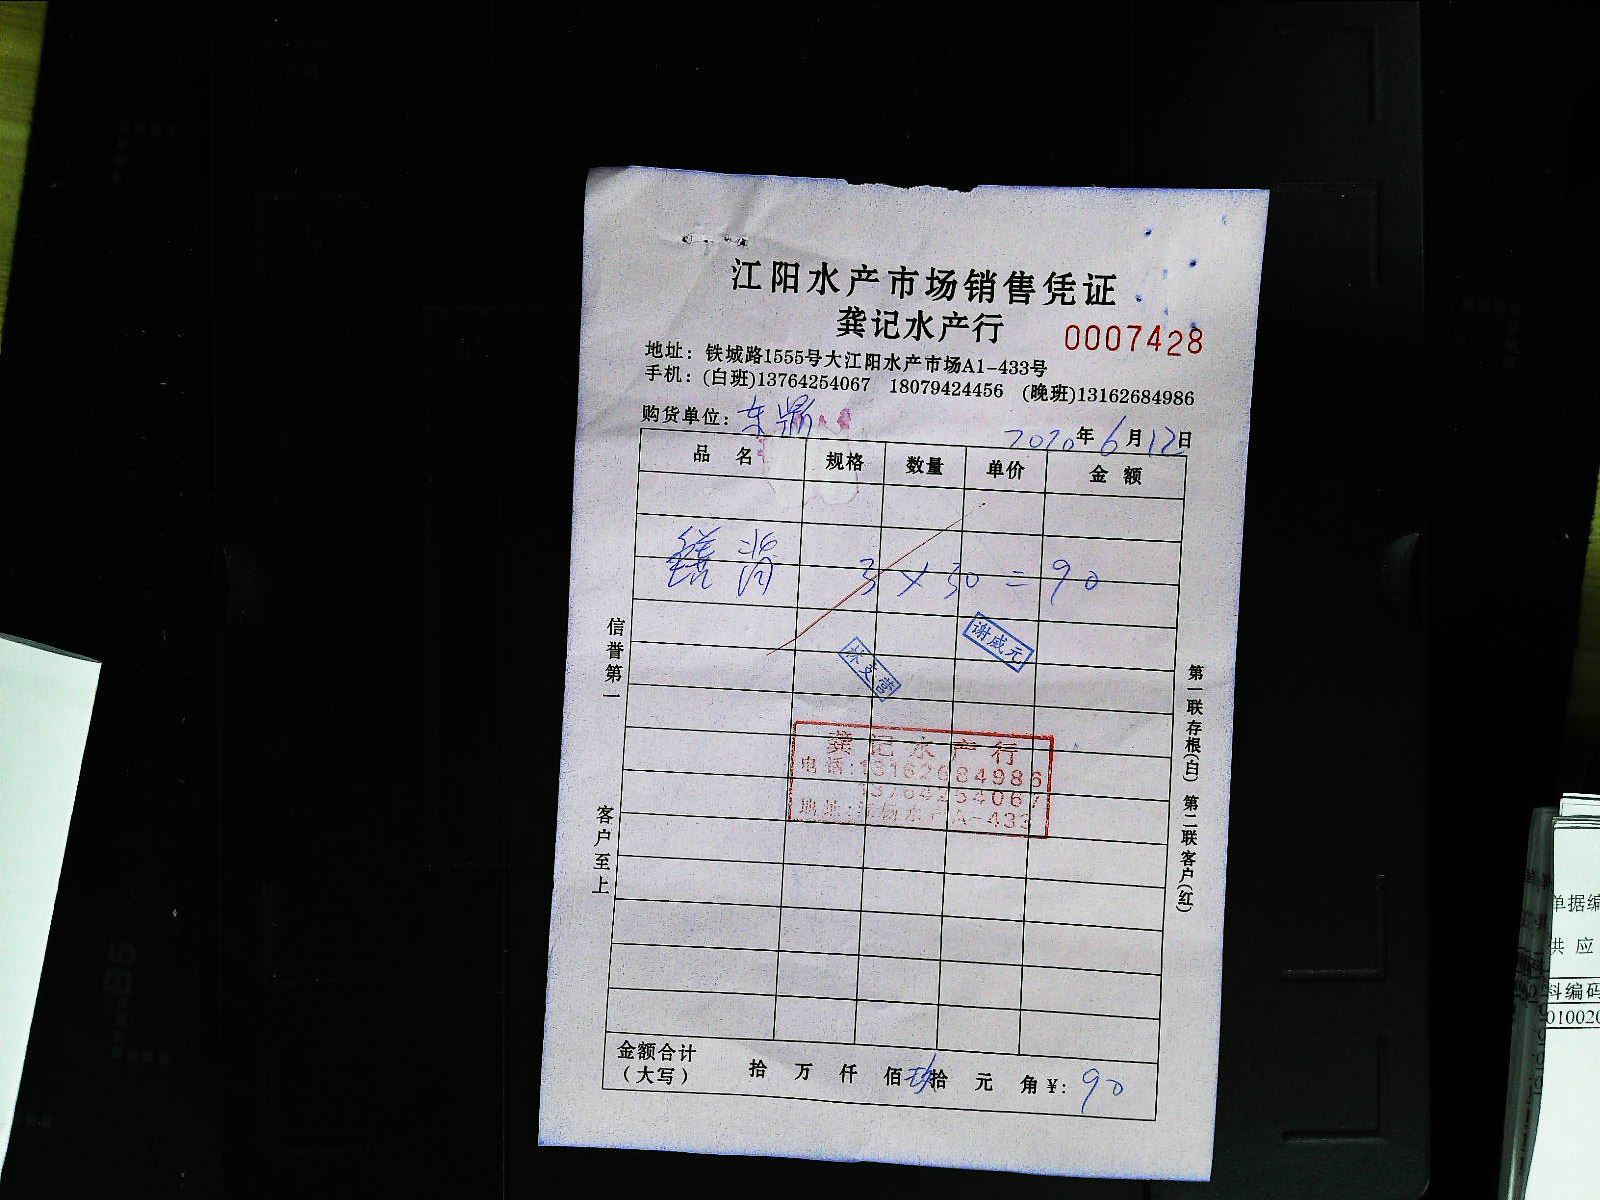 江阳水产市场销售凭证
龚记水产行 0007428
地址：铁城路1555号大江阳水产市场A1-433号
手机：(白班)13764254067 18079424456 (晚班)13162684986
购货单位：东鼎 2020年6月12日
品名 规格 数量 单价 金额
鳝背 3×30=90
谢威元
龚记水产行
电话:13162684986
13764254067
地址:江杨水产A-433
金额合计
（大写） 拾 万 仟 佰 玖拾 元 角 ¥: 90
信誉第一
客户至上
第一联存根(白) 第二联客户(红)
单据编
供应
料编码
010020